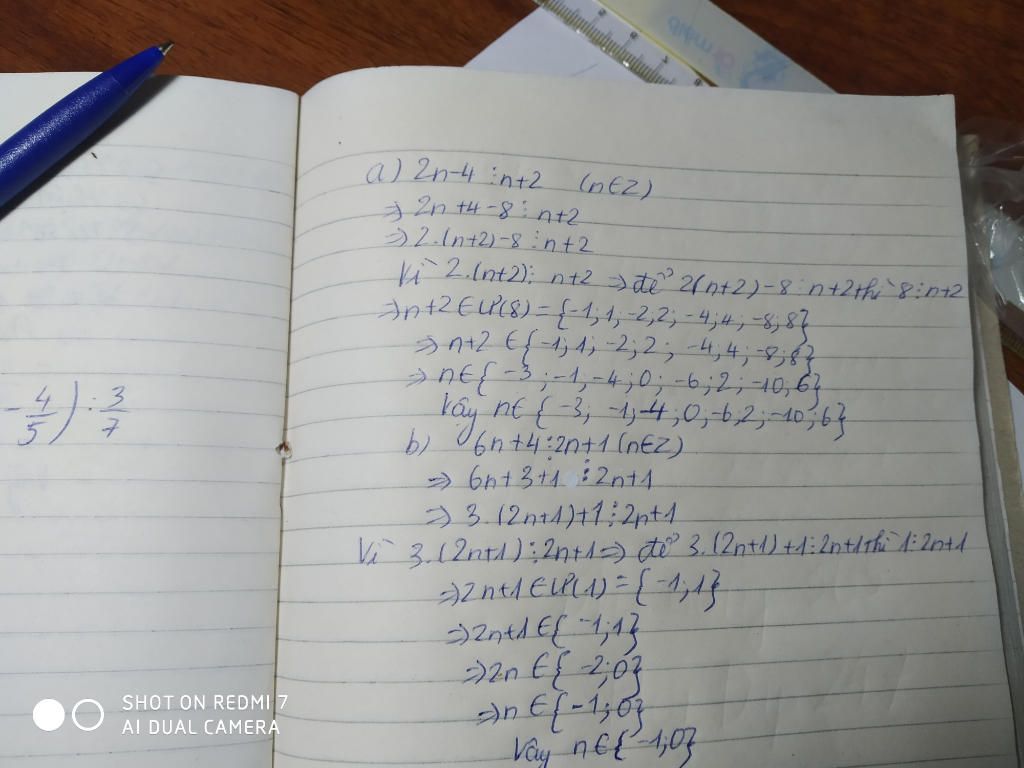 a) 2n-4 ⋮ n+2 (n∈Z)
⇒ 2n+4-8 ⋮ n+2
⇒ 2.(n+2)-8 ⋮ n+2
Vì 2.(n+2) ⋮ n+2 ⇒ để 2(n+2)-8 ⋮ n+2 thì 8 ⋮ n+2
⇒ n+2 ∈ Ư(8) = {-1; 1; -2; 2; -4; 4; -8; 8}
⇒ n+2 ∈ {-1; 1; -2; 2; -4; 4; -8; 8}
⇒ n∈{-3; -1; -4; 0; -6; 2; -10; 6}
Vậy n∈ {-3; -1; -4; 0; -6; 2; -10; 6}
b) 6n+4 ⋮ 2n+1 (n∈Z)
⇒ 6n+3+1 ⋮ 2n+1
⇒ 3.(2n+1)+1 ⋮ 2n+1
Vì 3.(2n+1) ⋮ 2n+1 ⇒ để 3.(2n+1)+1 ⋮ 2n+1 thì 1 ⋮ 2n+1
⇒ 2n+1 ∈ Ư(1) = {-1; 1}
⇒ 2n+1 ∈ {-1; 1}
⇒ 2n ∈ {-2; 0}
⇒ n ∈ {-1; 0}
Vậy n∈{-1; 0}
-4/5) : 3/7
SHOT ON REDMI 7
AI DUAL CAMERA